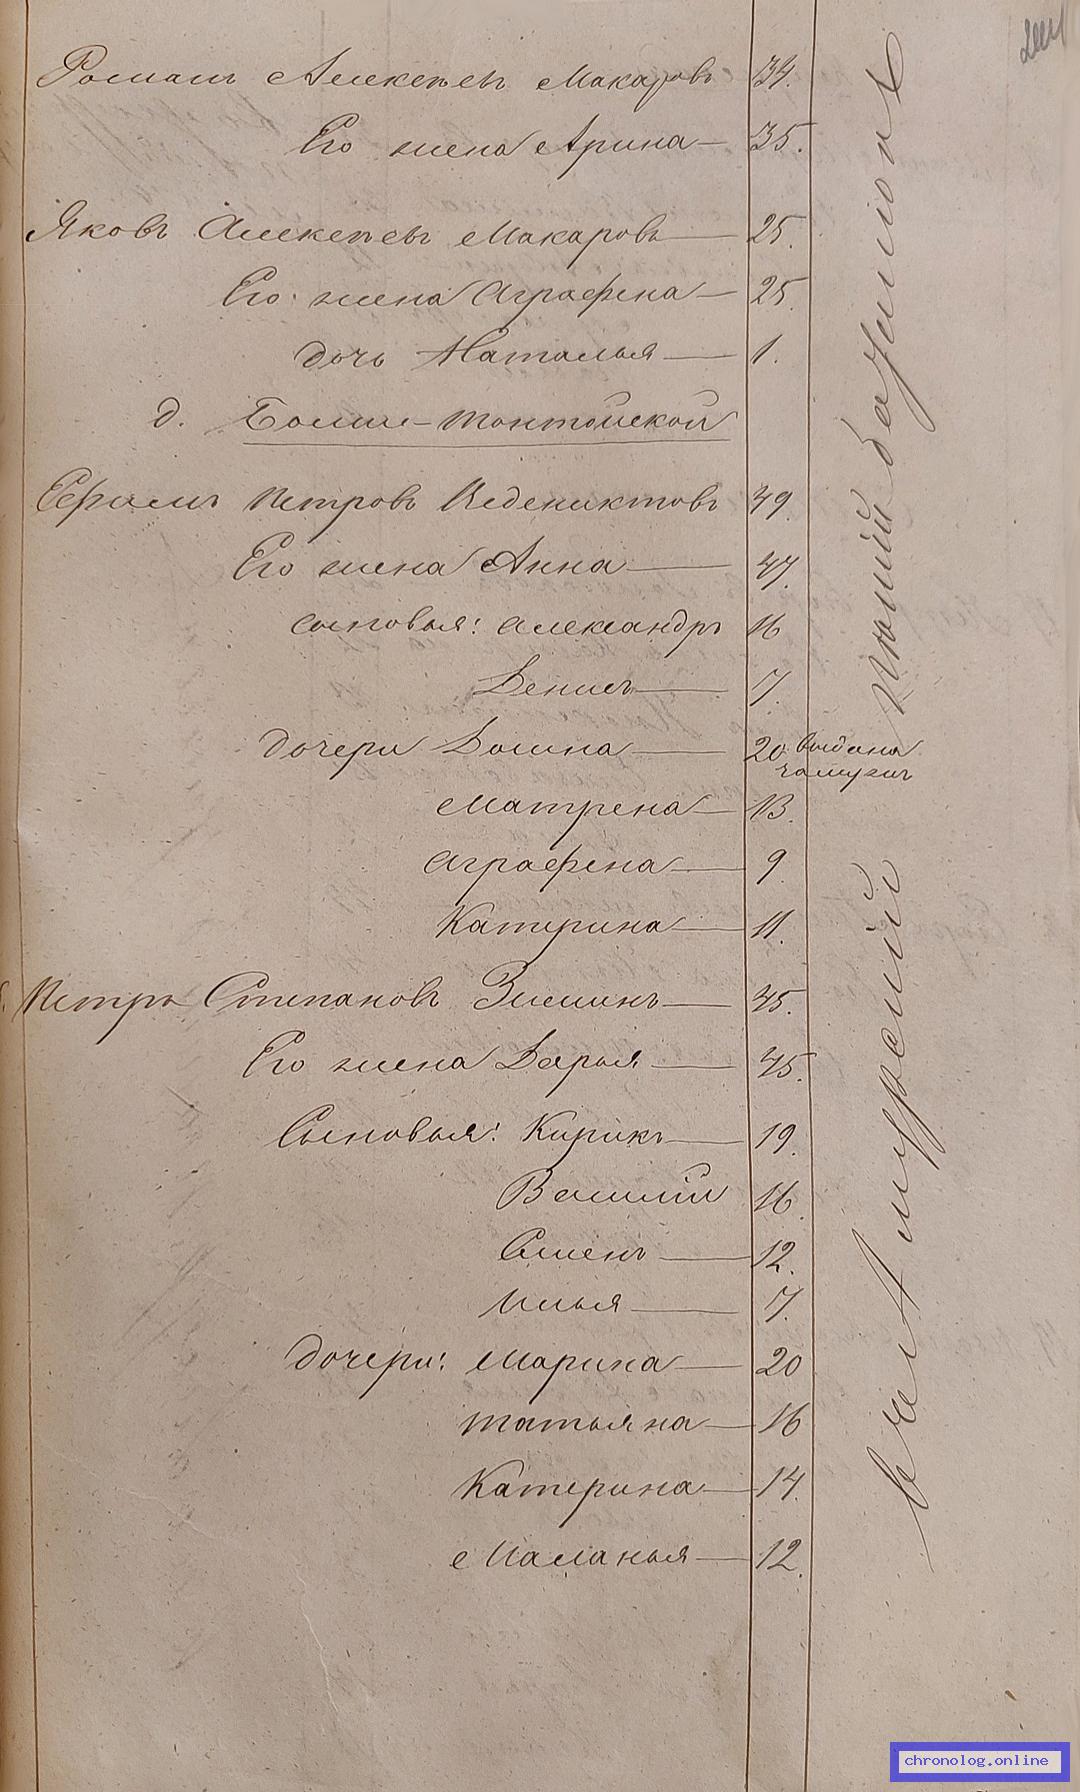 Романъ Алексѣевъ Макаровъ 34.
Его жена Арина — 35.
Яковъ Алексѣевъ Макаровъ — 25.
Его жена Аграфена — 25.
дочь Наталья — 1.
д. Больше-Тонтойской
Ефимъ Петровъ Ведениктовъ 49.
Его жена Анна — 47.
сыновья: Александръ 16
Денисъ — 7.
дочери Домна — 20. выдана
замужъ
Матрена — 13.
Аграфена — 9
Катерина — 11.
Петръ Степановъ Зиминъ — 45.
Его жена Дарья — 45.
Сыновья: Кирикъ — 19.
Василій 16
Семенъ — 12.
Илья — 7.
дочери: Марина — 20
Татьяна — 16
Катерина — 14.
Маланья — 12.
пѣшій баталіонъ
въ 1 Амурскій
chronolog.online